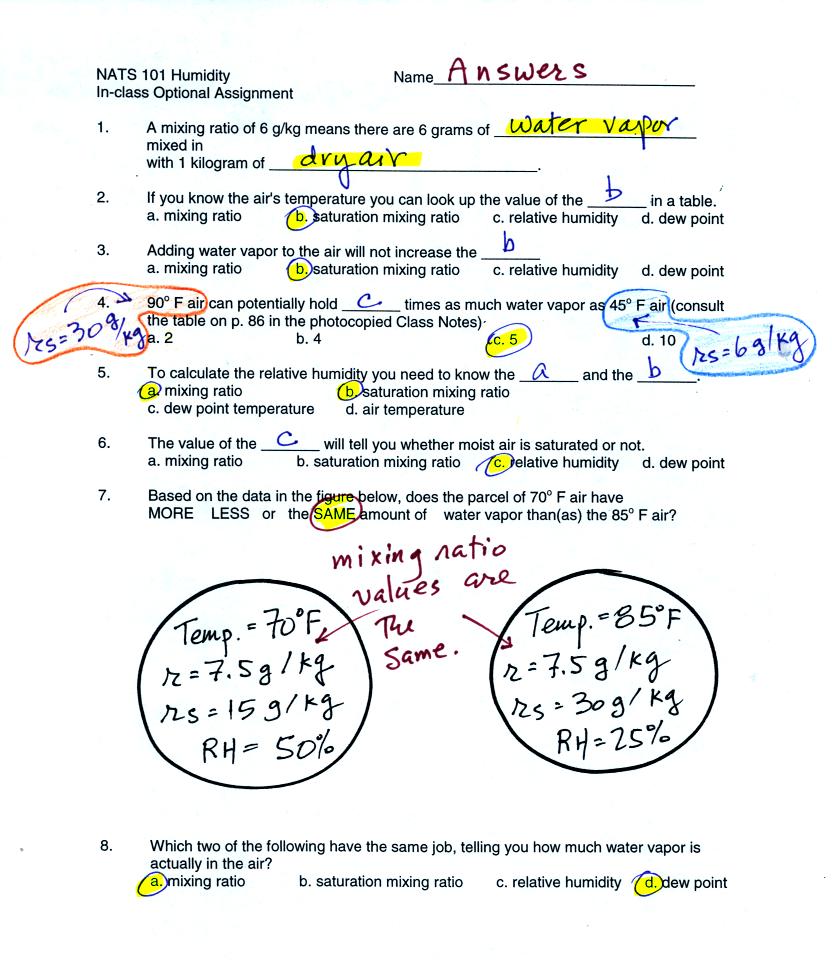 NATS 101 Humidity
Name Answers
In-class Optional Assignment
1. A mixing ratio of 6 g/kg means there are 6 grams of water vapor
mixed in
with 1 kilogram of dry air.
2. If you know the air's temperature you can look up the value of the b in a table.
a. mixing ratio b. saturation mixing ratio c. relative humidity d. dew point
3. Adding water vapor to the air will not increase the b
a. mixing ratio b. saturation mixing ratio c. relative humidity d. dew point
4. 90° F air can potentially hold c times as much water vapor as 45° F air (consult
rs=30g/kg
the table on p. 86 in the photocopied Class Notes).
a. 2 b. 4 c. 5 d. 10
rs=6g/kg
5. To calculate the relative humidity you need to know the a and the b.
a. mixing ratio b. saturation mixing ratio
c. dew point temperature d. air temperature
6. The value of the c will tell you whether moist air is saturated or not.
a. mixing ratio b. saturation mixing ratio c. relative humidity d. dew point
7. Based on the data in the figure below, does the parcel of 70° F air have
MORE LESS or the SAME amount of water vapor than(as) the 85° F air?
mixing ratio
values are
The
Same.
Temp. = 70°F
r=7.5g/kg
rs=15g/kg
RH= 50%
Temp.=85°F
r=7.5g/kg
rs=30g/kg
RH=25%
8. Which two of the following have the same job, telling you how much water vapor is
actually in the air?
a. mixing ratio b. saturation mixing ratio c. relative humidity d. dew point